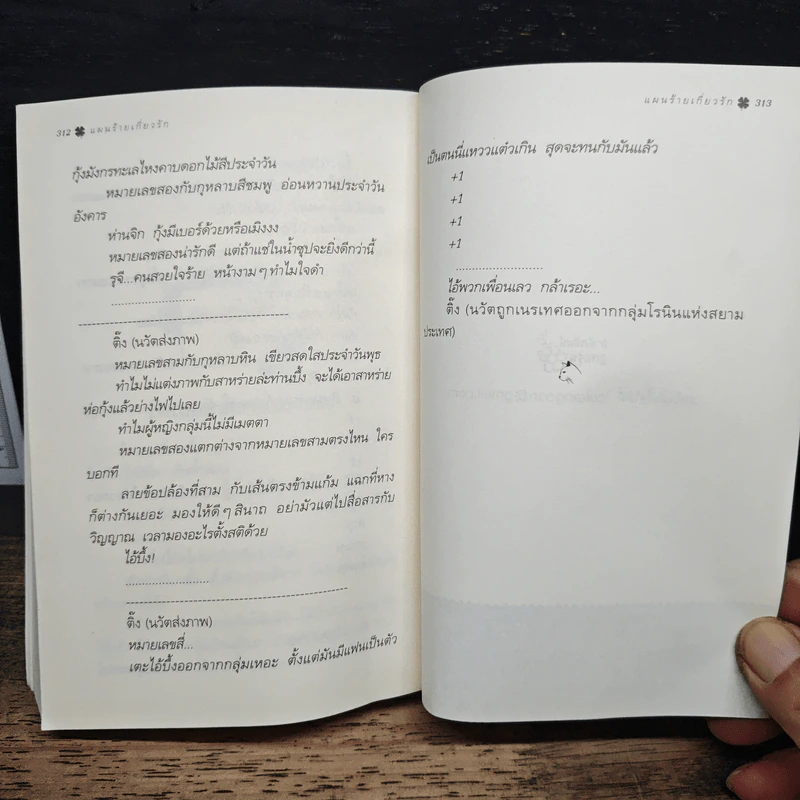 312 ✤ แผนร้ายเกี่ยวรัก
กุ้งมังกรทะเลไหงคาบดอกไม้สีประจำวัน
หมายเลขสองกับกุหลาบสีชมพู อ่อนหวานประจำวัน
อังคาร
ห่านจิก กุ้งมีเบอร์ด้วยหรือเมิงงง
หมายเลขสองน่ารักดี แต่ถ้าแช่ในน้ำซุปจะยิ่งดีกว่านี้
รุจี...คนสวยใจร้าย หน้างามๆ ทำไมใจดำ
........................
------------------------------------------------
ติ๊ง (นวัตส่งภาพ)
หมายเลขสามกับกุหลาบหิน เขียวสดใสประจำวันพุธ
ทำไมไม่แต่งภาพกับสาหร่ายล่ะท่านบึ้ง จะได้เอาสาหร่าย
ห่อกุ้งแล้วย่างไฟไปเลย
ทำไมผู้หญิงกลุ่มนี้ไม่มีเมตตา
หมายเลขสองแตกต่างจากหมายเลขสามตรงไหน ใคร
บอกที
ลายข้อปล้องที่สาม กับเส้นตรงข้ามแก้ม แฉกที่หาง
ก็ต่างกันเยอะ มองให้ดีๆ สินาถ อย่ามัวแต่ไปสื่อสารกับ
วิญญาณ เวลามองอะไรตั้งสติด้วย
ไอ้บึ้ง!
........................
------------------------------------------------
ติ๊ง (นวัตส่งภาพ)
หมายเลขสี่...
เตะไอ้บึ้งออกจากกลุ่มเหอะ ตั้งแต่มันมีแฟนเป็นตัว
แผนร้ายเกี่ยวรัก ✤ 313
เป็นตนนี่แหววแต๋วเกิน สุดจะทนกับมันแล้ว
+1
+1
+1
+1
........................
ไอ้พวกเพื่อนเลว กล้าเรอะ...
ติ๊ง (นวัตถูกเนรเทศออกจากกลุ่มโรนินแห่งสยาม
ประเทศ)